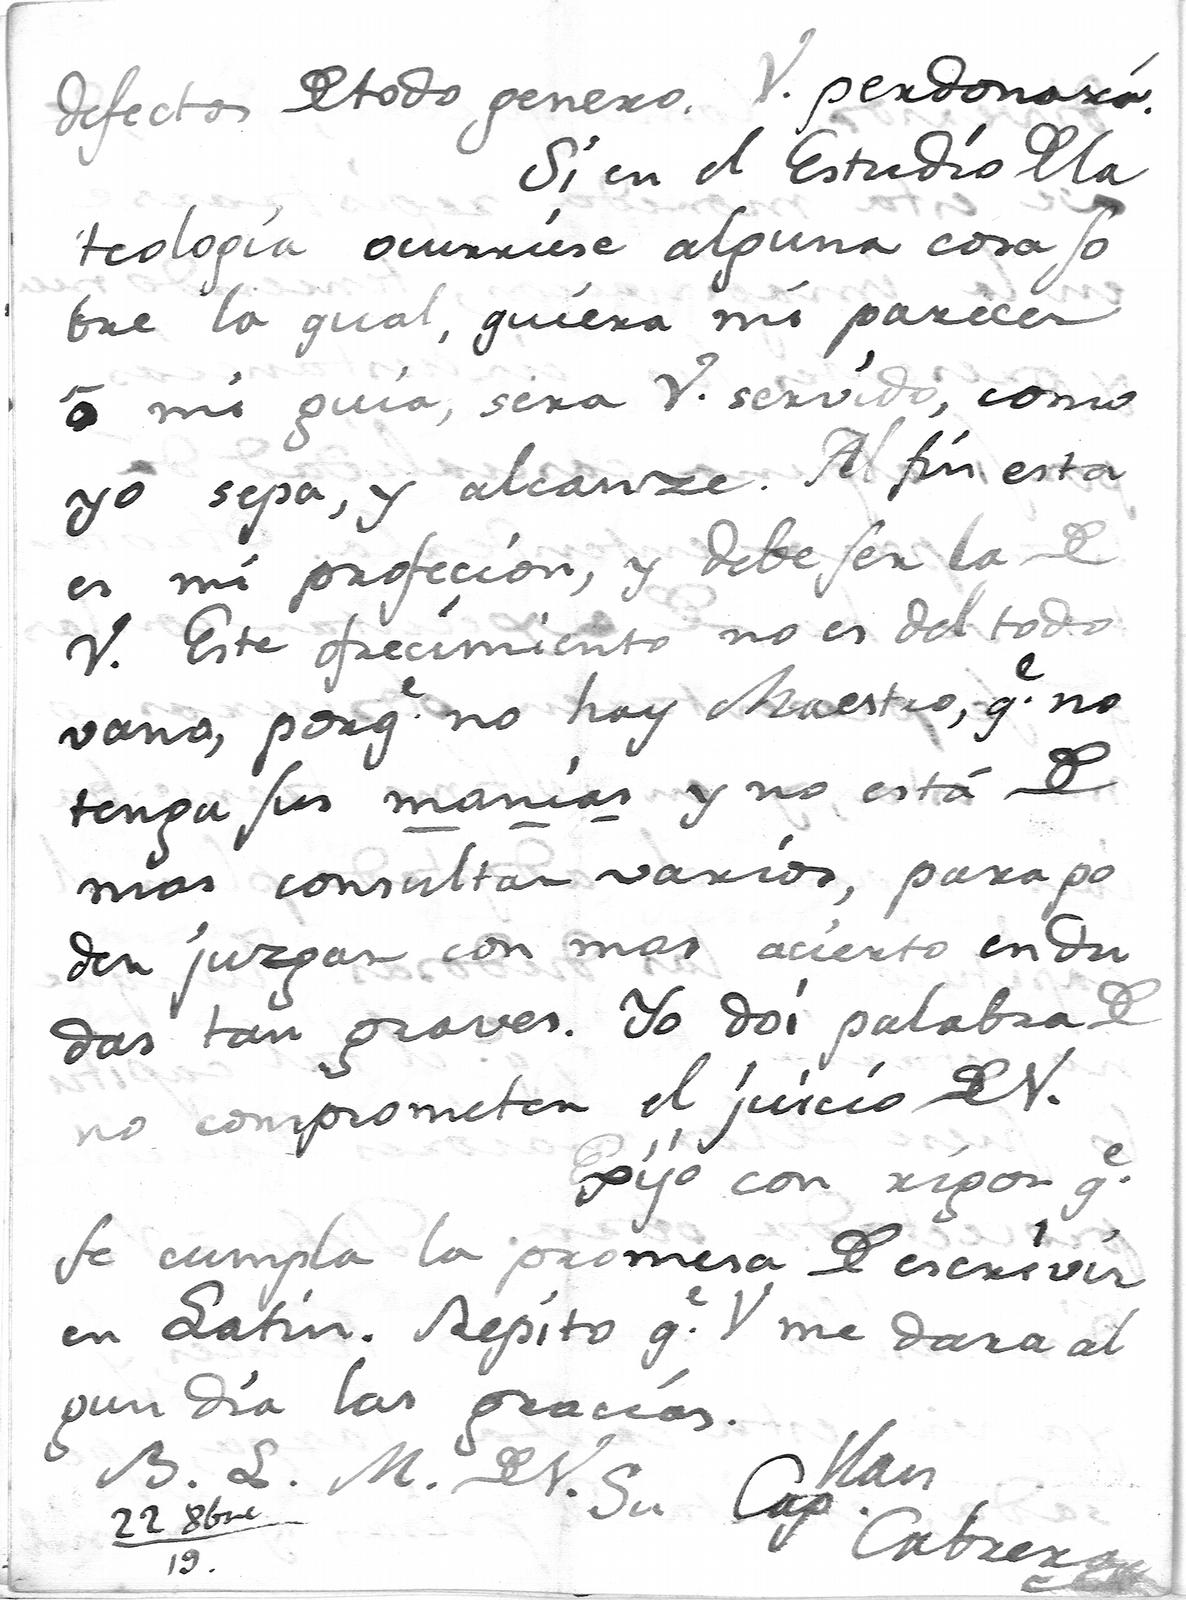 defectos D todo genero. V. perdonará.
Si en el Estudio D la
teología ocurriese alguna cosa so
bre la qual, quiera mi parecer
ō mi guia, sera V. servido, como
yó sepa, y alcanze. Al fin esta
es mi profecion, y debe ser la D
V. Este ofrecimiento no es del todo
vano, porqᵉ. no hay Maestro, qᵉ. no
tenga sus manías y no, está D
mas consultar varios, para po
der juzgar con mas acierto en du
das tan graves. Yo doi palabra D
no comprometer el juicio D V.
con rigor qᵉ.
se cumpla la promesa D escrivir
en Latin. Repito qᵉ. V me dara al
gun día las gracias.
B. L. M. D V. Su Cap.
Cabrera
22 8bre
19.